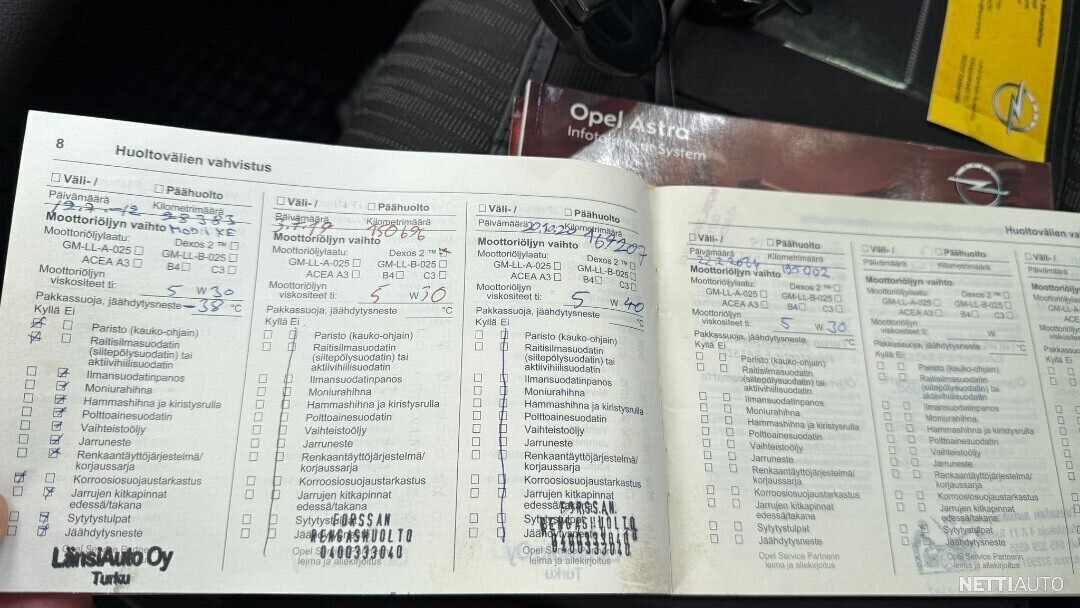 Opel Astra
Infotainment System
8 Huoltovälien vahvistus
Väli- / Päähuolto
Päivämäärä Kilometrimäärä
Moottoriöljyn vaihto
Moottoriöljylaatu: Dexos 2 ™
GM-LL-A-025 GM-LL-B-025
ACEA A3 B4 C3
Moottoriöljyn
viskositeetti: 5 W 30
Pakkassuoja, jäähdytysneste -38 °C
Kyllä Ei
Paristo (kauko-ohjain)
Raitisilmasuodatin
(siitepölysuodatin) tai
aktiivihiilisuodatin
Ilmansuodatinpanos
Moniurahihna
Hammashihna ja kiristysrulla
Polttoainesuodatin
Vaihteistoöljy
Jarruneste
Renkaantäyttöjärjestelmä/
korjaussarja
Korroosiosuojaustarkastus
Jarrujen kitkapinnat
edessä/takana
Sytytystulpat
Jäähdytysneste
LänsiAuto Oy
Turku
Väli- / Päähuolto
Päivämäärä Kilometrimäärä
150696
Moottoriöljyn vaihto
Moottoriöljylaatu: Dexos 2 ™
GM-LL-A-025 GM-LL-B-025
ACEA A3 B4 C3
Moottoriöljyn
viskositeetti: 5 W 30
Pakkassuoja, jäähdytysneste °C
Kyllä Ei
Paristo (kauko-ohjain)
Raitisilmasuodatin
(siitepölysuodatin) tai
aktiivihiilisuodatin
Ilmansuodatinpanos
Moniurahihna
Hammashihna ja kiristysrulla
Polttoainesuodatin
Vaihteistoöljy
Jarruneste
Renkaantäyttöjärjestelmä/
korjaussarja
Korroosiosuojaustarkastus
Jarrujen kitkapinnat
edessä/takana
FORSSAN
RENGASHUOLTO
0400333040
Opel Service Partnerin
leima ja allekirjoitus
Väli- / Päähuolto
Päivämäärä 20.10.20 169207
Moottoriöljyn vaihto
Moottoriöljylaatu: Dexos 2 ™
GM-LL-A-025 GM-LL-B-025
ACEA A3 B4 C3
Moottoriöljyn
viskositeetti: 5 W 40
Pakkassuoja, jäähdytysneste °C
Kyllä Ei
Paristo (kauko-ohjain)
Raitisilmasuodatin
(siitepölysuodatin) tai
aktiivihiilisuodatin
Ilmansuodatinpanos
Moniurahihna
Hammashihna ja kiristysrulla
Polttoainesuodatin
Vaihteistoöljy
Jarruneste
Renkaantäyttöjärjestelmä/
korjaussarja
Korroosiosuojaustarkastus
Jarrujen kitkapinnat
edessä/takana
Sytytystulpat
FORSSAN
RENGASHUOLTO
0400333040
Opel Service Partnerin
leima ja allekirjoitus
Väli- / Päähuolto
Päivämäärä Kilometrimäärä
22.2.2024 195002
Moottoriöljyn vaihto
Moottoriöljylaatu: Dexos 2 ™
GM-LL-A-025 GM-LL-B-025
ACEA A3 B4 C3
Moottoriöljyn
viskositeetti: 5 W 30
Pakkassuoja, jäähdytysneste °C
Kyllä Ei
Paristo (kauko-ohjain)
Raitisilmasuodatin
(siitepölysuodatin) tai
aktiivihiilisuodatin
Ilmansuodatinpanos
Moniurahihna
Hammashihna ja kiristysrulla
Polttoainesuodatin
Vaihteistoöljy
Jarruneste
Renkaantäyttöjärjestelmä/
korjaussarja
Korroosiosuojaustarkastus
Jarrujen kitkapinnat
edessä/takana
Sytytystulpat
Jäähdytysneste
Opel Service Partnerin
leima ja allekirjoitus
Väli- / Päähuolto
Päivämäärä Kilometrimäärä
Moottoriöljyn vaihto
Moottoriöljylaatu: Dexos 2 ™
GM-LL-A-025 GM-LL-B-025
ACEA A3 B4 C3
Moottoriöljyn
viskositeetti: W
Pakkassuoja, jäähdytysneste °C
Kyllä Ei
Paristo (kauko-ohjain)
Raitisilmasuodatin
(siitepölysuodatin) tai
aktiivihiilisuodatin
Ilmansuodatinpanos
Moniurahihna
Hammashihna ja kiristysrulla
Polttoainesuodatin
Vaihteistoöljy
Jarruneste
Renkaantäyttöjärjestelmä/
korjaussarja
Korroosiosuojaustarkastus
Jarrujen kitkapinnat
edessä/takana
Sytytystulpat
Jäähdytysneste
Opel Service Partnerin
leima ja allekirjoitus
NETTIAUTO